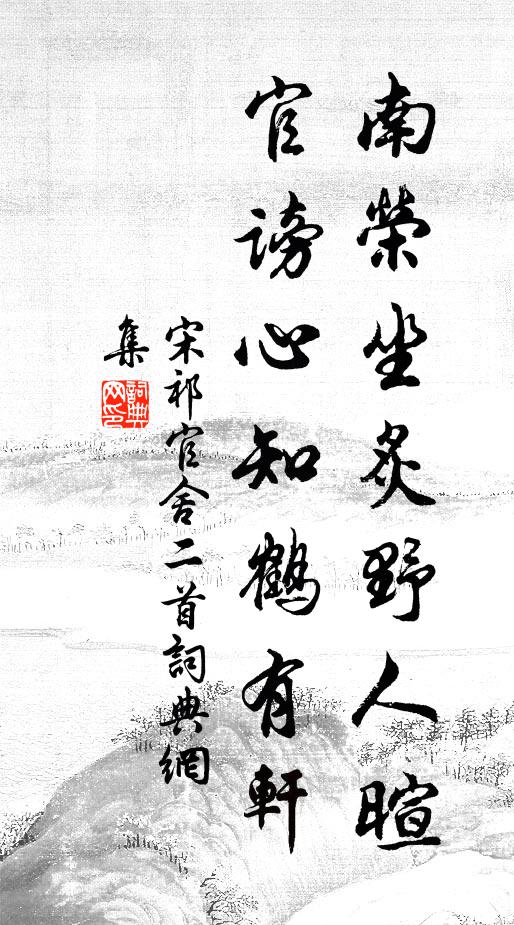 南榮坐炙野人暄
官謗心知鶴有軒
宋祁官舍二首詞典網
集
詞典
网印